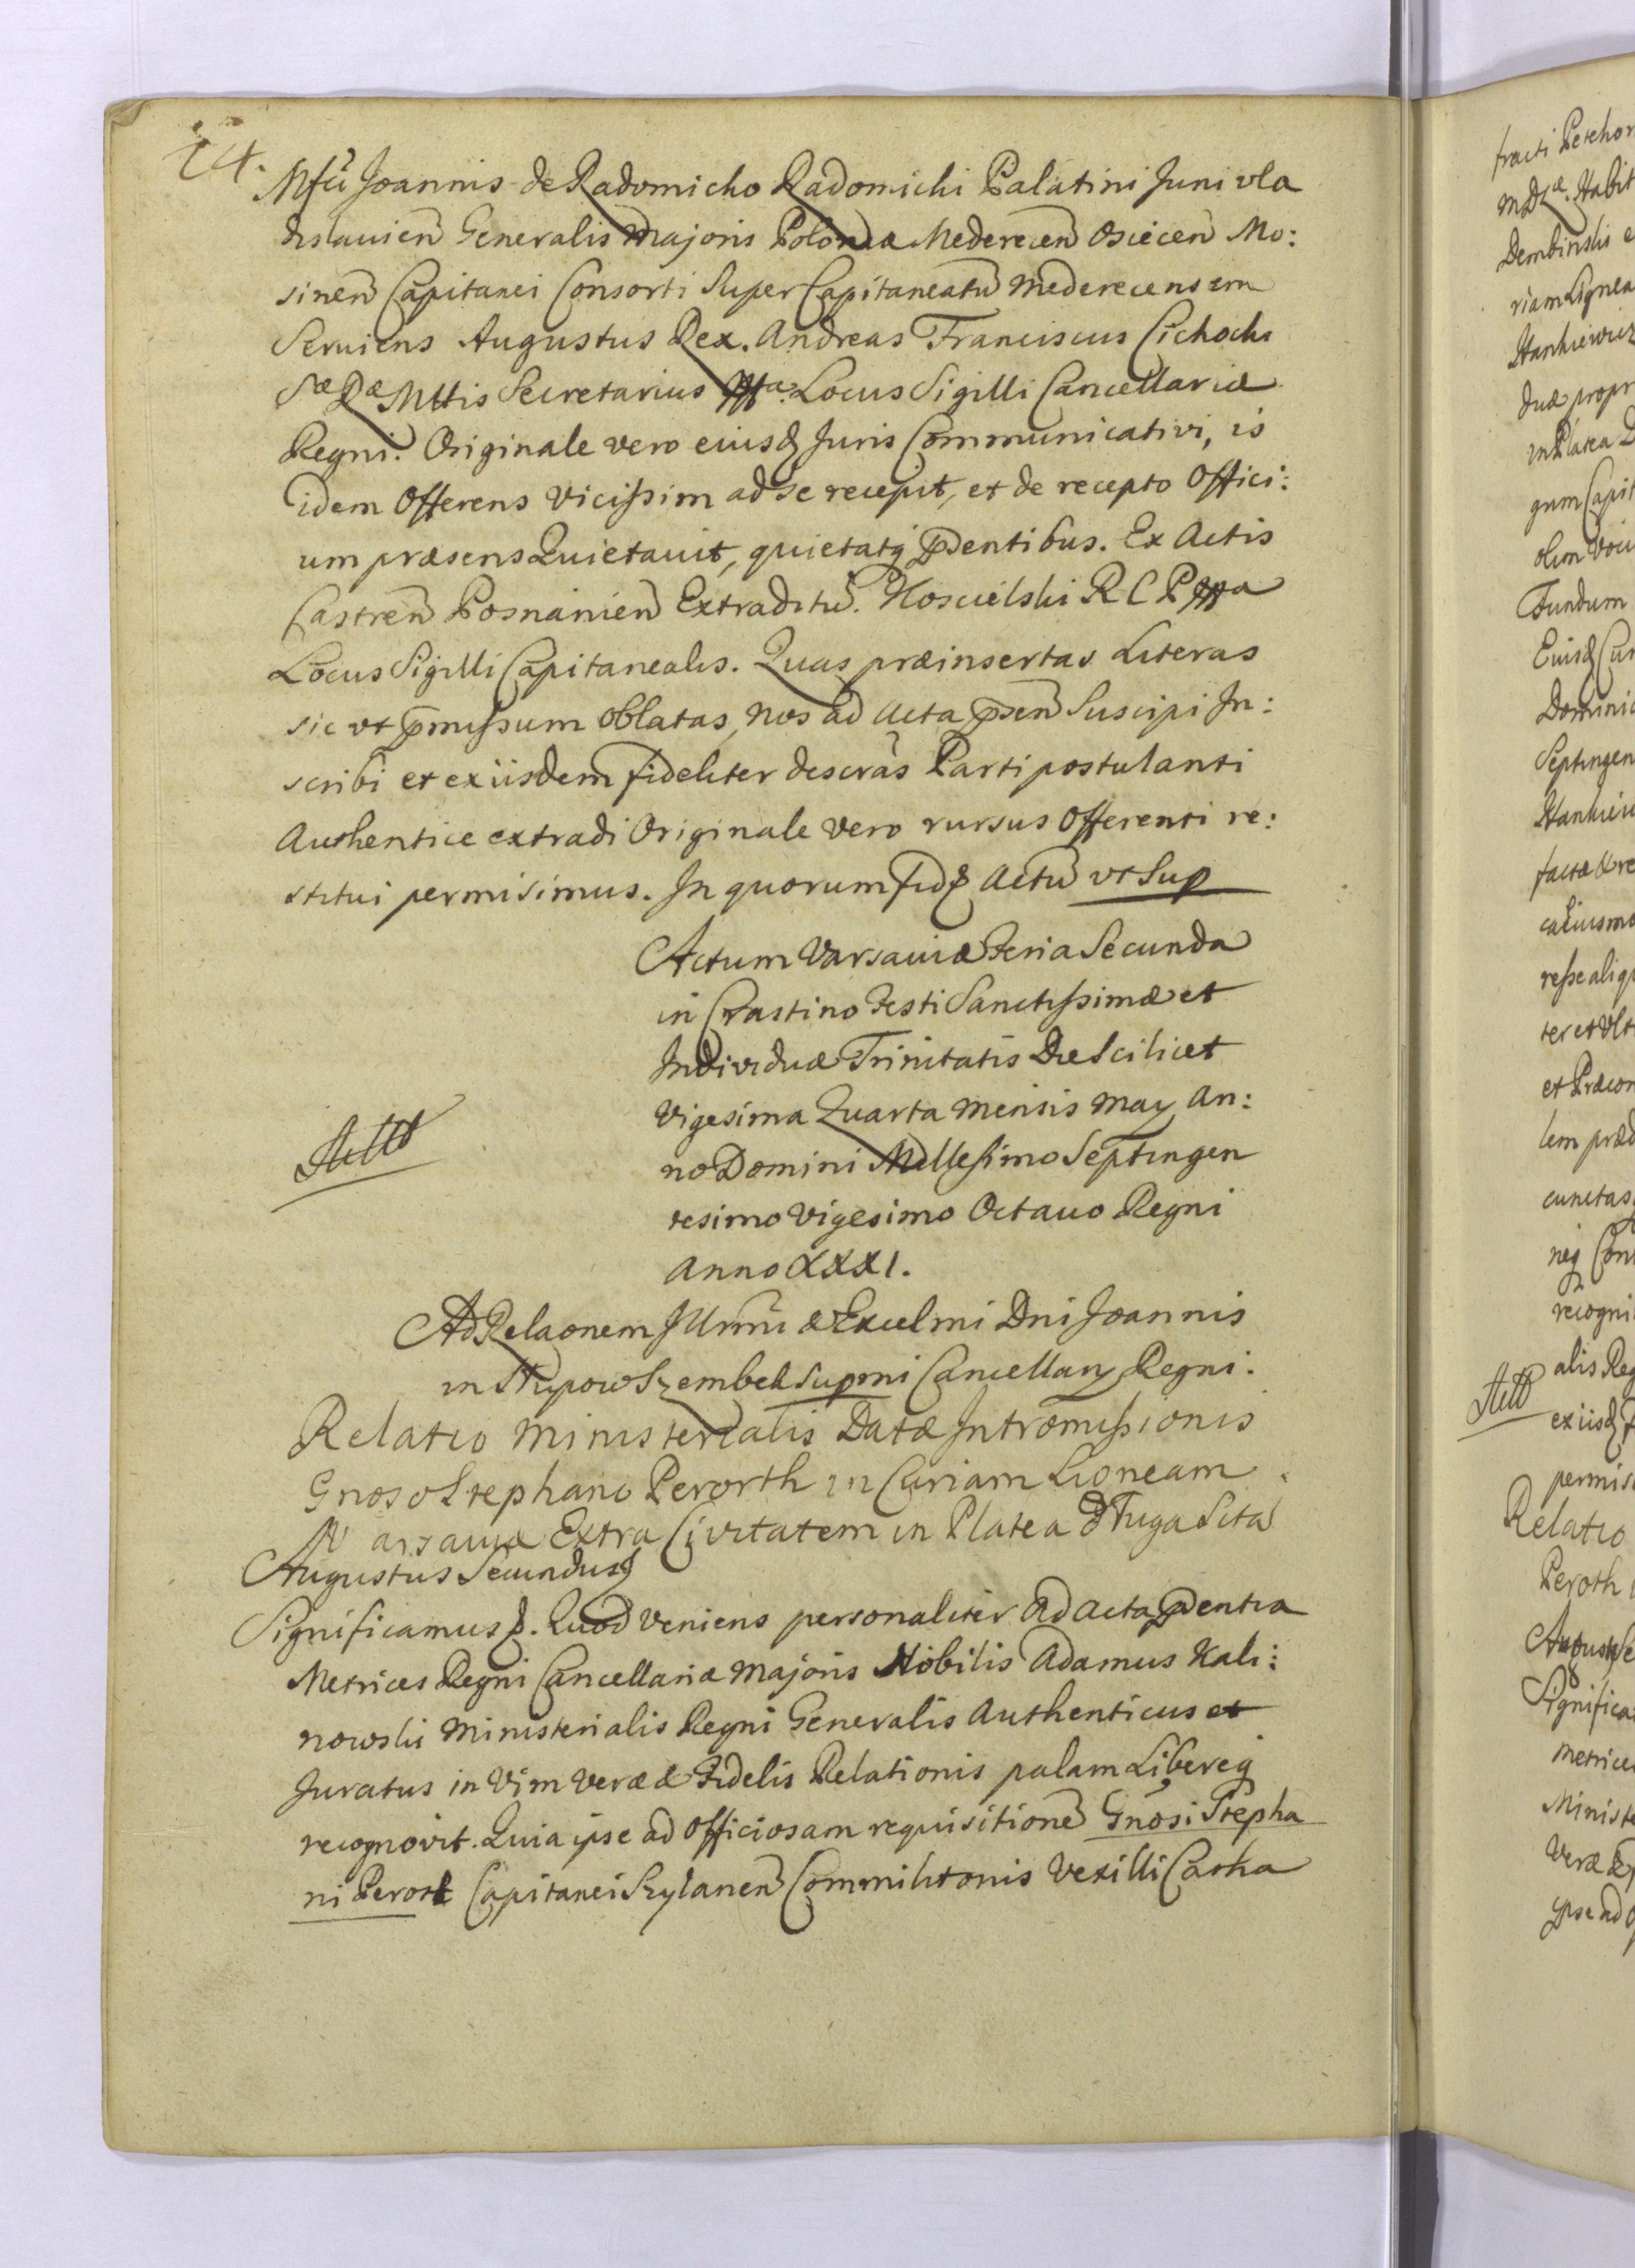 24.
Mfci Joannis de Radomicko Radomicki Palatini Juni vla
dislauien Generalis Majoris Poloniæ Mederecen Osiecen Mo:
sinen Capitanei Consorti Super Capitaneatu Mederecensem
Seruiens Augustus Rex. Andreas Franciscus Cichocki
Sæ Ræ Mttis Secretarius mpp. Locus Sigilli Cancellariæ
Regni. Originale vero eiusd Juris Communicativi, is
idem Offerens vicissim ad se recepit, et de recepto Offici:
um præsens Quietauit, quietatq pdentibus. Ex Actis
Castren Posnanien Extraditu. Koscielski R C P mppa
Locus Sigilli Capitanealis. Quas præinsertas Literas
sic vt pmissum oblatas, nos ad Acta psen Suscipi In:
scribi et ex iisdem fideliter descras Parti postulanti
Authentice extradi Originale vero rursus Offerenti re:
stitui permisimus. In quorum fid Actu vt Sup
Actum Varsauiæ Feria Secunda
in Crastino Festi Sanctissimæ et
Individuæ Trinitatis Die Scilicet
Vigesima Quarta Mensis May An:
no Domini Millesimo Septingen
tesimo Vigesimo Octauo Regni
Anno XXXI.
Ad Relaonem Illmi & Excelmi Dni Joannis
in Słupow Szembek Supmi Cancellarij Regni.
Relatio Ministerialis Datæ Intromissionis
Gnoso Stephano Perorth in Curiam Ligneam
Varsauiæ Extra Civitatem in Platea Długa Sita
Augustus Secundus
Significamus. Quod veniens personaliter ad acta pdentia
Metrices Regni Cancellariæ Majoris Nobilis Adamus Kali:
nowski Ministerialis Regni Generalis Authenticus et
Juratus in Vim Veræ & Fidelis Relationis palam Libereq
recognovit. Quia ipse ad Officiosam requisitione Gnosi Stepha
ni Perort Capitanei Szylanen Commilitonis Vexilli Catha
fracti
Habit
Dembinski
riam Lignea
Stankiewicz
duæ propr
in Platea
gum Capit
olim
Fundum
Dominic
Septingen
factæ
resse aliq
ter et Vlt
lem præd
cunctas
neq Con
recogni
alis Reg
permis
Relatio
Peroth
Significa
Metrice
Ministe
Veræ &
ipse ad